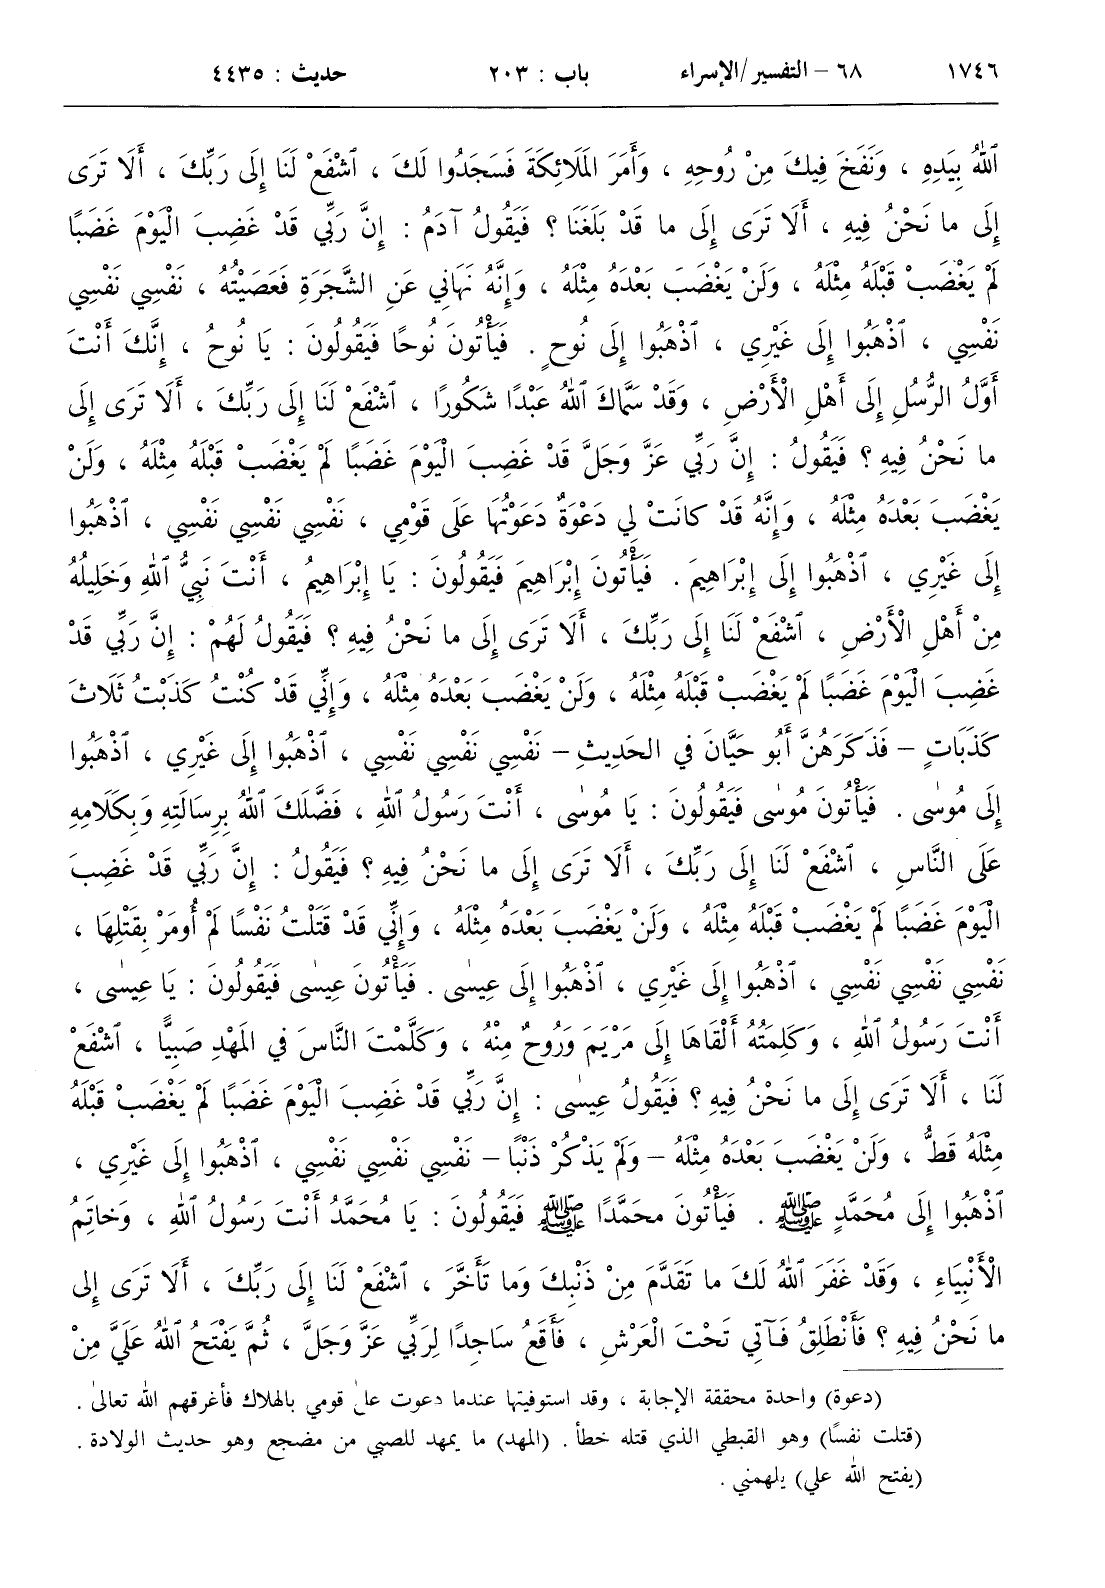 ١٧٤٦ ٦٨ – التفسير/الإسراء باب : ٢٠٣ حديث : ٤٤٣٥
ٱللهُ بِيَدِهِ ، وَنَفَخَ فِيكَ مِنْ رُوحِهِ ، وَأَمَرَ المَلَائِكَةَ فَسَجَدُوا لَكَ ، ٱشْفَعْ لَنَا إِلَى رَبِّكَ ، أَلَا تَرَى
إِلَى ما نَحْنُ فِيهِ ، أَلَا تَرَى إِلَى ما قَدْ بَلَغَنَا ؟ فَيَقُولُ آدَمُ : إِنَّ رَبِّي قَدْ غَضِبَ الْيَوْمَ غَضَبًا
لَمْ يَغْضَبْ قَبْلَهُ مِثْلَهُ ، وَلَنْ يَغْضَبَ بَعْدَهُ مِثْلَهُ ، وَإِنَّهُ نَهَانِي عَنِ الشَّجَرَةِ فَعَصَيْتُهُ ، نَفْسِي نَفْسِي
نَفْسِي ، ٱذْهَبُوا إِلَى غَيْرِي ، ٱذْهَبُوا إِلَى نُوحٍ . فَيَأْتُونَ نُوحًا فَيَقُولُونَ : يَا نُوحُ ، إِنَّكَ أَنْتَ
أَوَّلُ الرُّسُلِ إِلَى أَهْلِ الْأَرْضِ ، وَقَدْ سَمَّاكَ ٱللهُ عَبْدًا شَكُورًا ، ٱشْفَعْ لَنَا إِلَى رَبِّكَ ، أَلَا تَرَى إِلَى
ما نَحْنُ فِيهِ ؟ فَيَقُولُ : إِنَّ رَبِّي عَزَّ وَجَلَّ قَدْ غَضِبَ الْيَوْمَ غَضَبًا لَمْ يَغْضَبْ قَبْلَهُ مِثْلَهُ ، وَلَنْ
يَغْضَبَ بَعْدَهُ مِثْلَهُ ، وَإِنَّهُ قَدْ كانَتْ لِي دَعْوَةٌ دَعَوْتُهَا عَلَى قَوْمِي ، نَفْسِي نَفْسِي نَفْسِي ، ٱذْهَبُوا
إِلَى غَيْرِي ، ٱذْهَبُوا إِلَى إِبْرَاهِيمَ . فَيَأْتُونَ إِبْرَاهِيمَ فَيَقُولُونَ : يَا إِبْرَاهِيمُ ، أَنْتَ نَبِيُّ ٱللهِ وَخَلِيلُهُ
مِنْ أَهْلِ الْأَرْضِ ، ٱشْفَعْ لَنَا إِلَى رَبِّكَ ، أَلَا تَرَى إِلَى ما نَحْنُ فِيهِ ؟ فَيَقُولُ لَهُمْ : إِنَّ رَبِّي قَدْ
غَضِبَ الْيَوْمَ غَضَبًا لَمْ يَغْضَبْ قَبْلَهُ مِثْلَهُ ، وَلَنْ يَغْضَبَ بَعْدَهُ مِثْلَهُ ، وَإِنِّي قَدْ كُنْتُ كَذَبْتُ ثَلَاثَ
كَذَبَاتٍ – فَذَكَرَهُنَّ أَبُو حَيَّانَ في الحَدِيثِ – نَفْسِي نَفْسِي نَفْسِي ، ٱذْهَبُوا إِلَى غَيْرِي ، ٱذْهَبُوا
إِلَى مُوسٰى . فَيَأْتُونَ مُوسٰى فَيَقُولُونَ : يَا مُوسٰى ، أَنْتَ رَسُولُ ٱللهِ ، فَضَّلَكَ ٱللهُ بِرِسَالَتِهِ وَبِكَلَامِهِ
عَلَى النَّاسِ ، ٱشْفَعْ لَنَا إِلَى رَبِّكَ ، أَلَا تَرَى إِلَى ما نَحْنُ فِيهِ ؟ فَيَقُولُ : إِنَّ رَبِّي قَدْ غَضِبَ
الْيَوْمَ غَضَبًا لَمْ يَغْضَبْ قَبْلَهُ مِثْلَهُ ، وَلَنْ يَغْضَبَ بَعْدَهُ مِثْلَهُ ، وَإِنِّي قَدْ قَتَلْتُ نَفْسًا لَمْ أُومَرْ بِقَتْلِهَا ،
نَفْسِي نَفْسِي نَفْسِي ، ٱذْهَبُوا إِلَى غَيْرِي ، ٱذْهَبُوا إِلَى عِيسٰى . فَيَأْتُونَ عِيسٰى فَيَقُولُونَ : يَا عِيسٰى ،
أَنْتَ رَسُولُ ٱللهِ ، وَكَلِمَتُهُ أَلْقَاهَا إِلَى مَرْيَمَ وَرُوحٌ مِنْهُ ، وَكَلَّمْتَ النَّاسَ في المَهْدِ صَبِيًّا ، ٱشْفَعْ
لَنَا ، أَلَا تَرَى إِلَى ما نَحْنُ فِيهِ ؟ فَيَقُولُ عِيسٰى : إِنَّ رَبِّي قَدْ غَضِبَ الْيَوْمَ غَضَبًا لَمْ يَغْضَبْ قَبْلَهُ
مِثْلَهُ قَطُّ ، وَلَنْ يَغْضَبَ بَعْدَهُ مِثْلَهُ – وَلَمْ يَذْكُرْ ذَنْبًا – نَفْسِي نَفْسِي نَفْسِي ، ٱذْهَبُوا إِلَى غَيْرِي ،
ٱذْهَبُوا إِلَى مُحَمَّدٍ ﷺ . فَيَأْتُونَ مُحَمَّدًا ﷺ فَيَقُولُونَ : يَا مُحَمَّدُ أَنْتَ رَسُولُ ٱللهِ ، وَخاتِمُ
الْأَنْبِيَاءِ ، وَقَدْ غَفَرَ ٱللهُ لَكَ ما تَقَدَّمَ مِنْ ذَنْبِكَ وَما تَأَخَّرَ ، ٱشْفَعْ لَنَا إِلَى رَبِّكَ ، أَلَا تَرَى إِلى
ما نَحْنُ فِيهِ ؟ فَأَنْطَلِقُ فَآتِي تَحْتَ الْعَرْشِ ، فَأَقَعُ سَاجِدًا لِرَبِّي عَزَّ وَجَلَّ ، ثُمَّ يَفْتَحُ ٱللهُ عَلَيَّ مِنْ
(دعوة) واحدة محققة الإجابة ، وقد استوفيتها عندما دعوت على قومي بالهلاك فأغرقهم الله تعالىٰ .
(قتلت نفسًا) وهو القبطي الذي قتله خطأ . (المهد) ما يمهد للصبي من مضجع وهو حديث الولادة .
(يفتح الله علي) يلهمني .